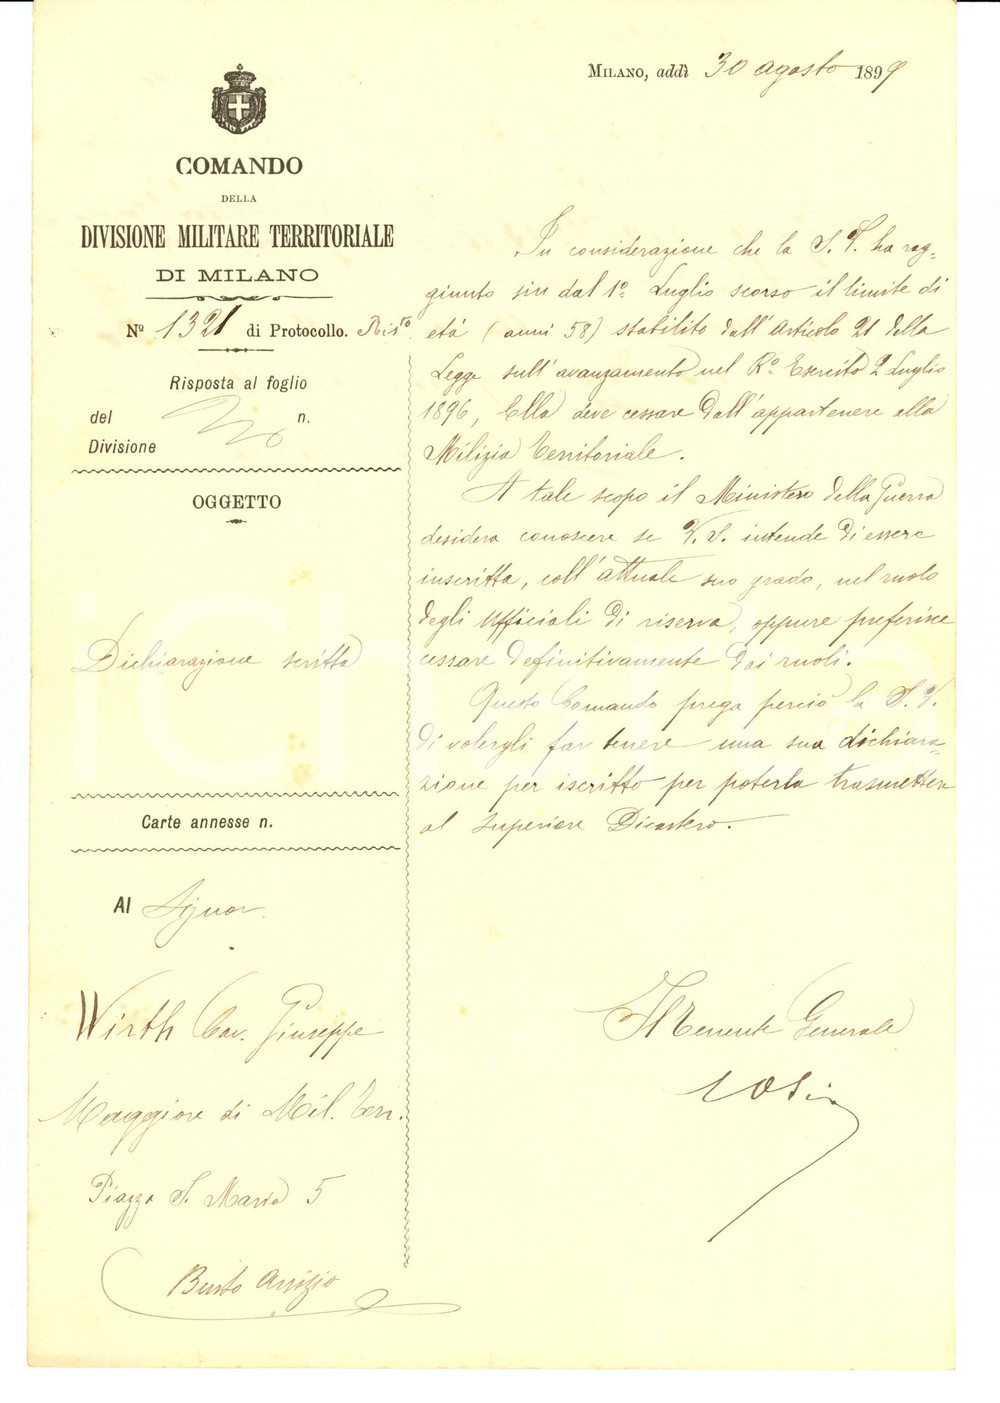 MILANO, addì 30 agosto 1899
COMANDO
DELLA
DIVISIONE MILITARE TERRITORIALE
DI MILANO
Nº 1321 di Protocollo. Ris.to
Risposta al foglio
del n.
Divisione
OGGETTO
Dichiarazione scritta
Carte annesse n.
Al Signor
Wirth Cav. Giuseppe
Maggiore di Mil. Terr.
Piazza S. Maria 5
Busto Arsizio
In considerazione che la S. V. ha rag=
giunto sin dal 1º Luglio scorso il limite di
età (anni 58) stabilito dall'Articolo 21 della
Legge sull'avanzamento nel Rº Esercito 2 Luglio
1896, Ella deve cessare dall'appartenere alla
Milizia Territoriale.
A tale scopo il Ministero della Guerra
desidera conoscere se V. S. intende di essere
inscritta, coll'attuale suo grado, nel ruolo
degli Ufficiali di riserva, oppure preferisce
cessare definitivamente dai ruoli.
Questo Comando prega perciò la S. V.
di volergli far tenere una sua dichiara=
zione per iscritto per poterla trasmettere
al Superiore Dicastero.
Il Tenente Generale